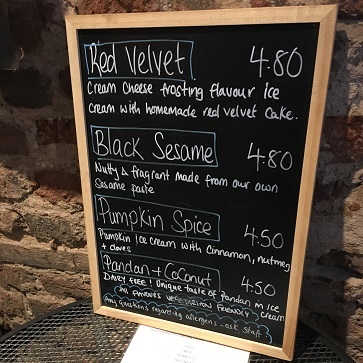 Red Velvet 4.80
Cream Cheese frosting flavour ice
cream with homemade red velvet cake.
Black Sesame 4.80
Nutty & fragrant made from our own
Sesame paste
Pumpkin Spice 4.50
Pumpkin ice cream with Cinnamon, nutmeg
+ cloves
Pandan + Coconut 4.50
DAIRY free! Unique taste of Pandan in ice
cream
All FLAVOURS VEGETARIAN FRIENDLY
Any questions regarding allergens - ask Staff